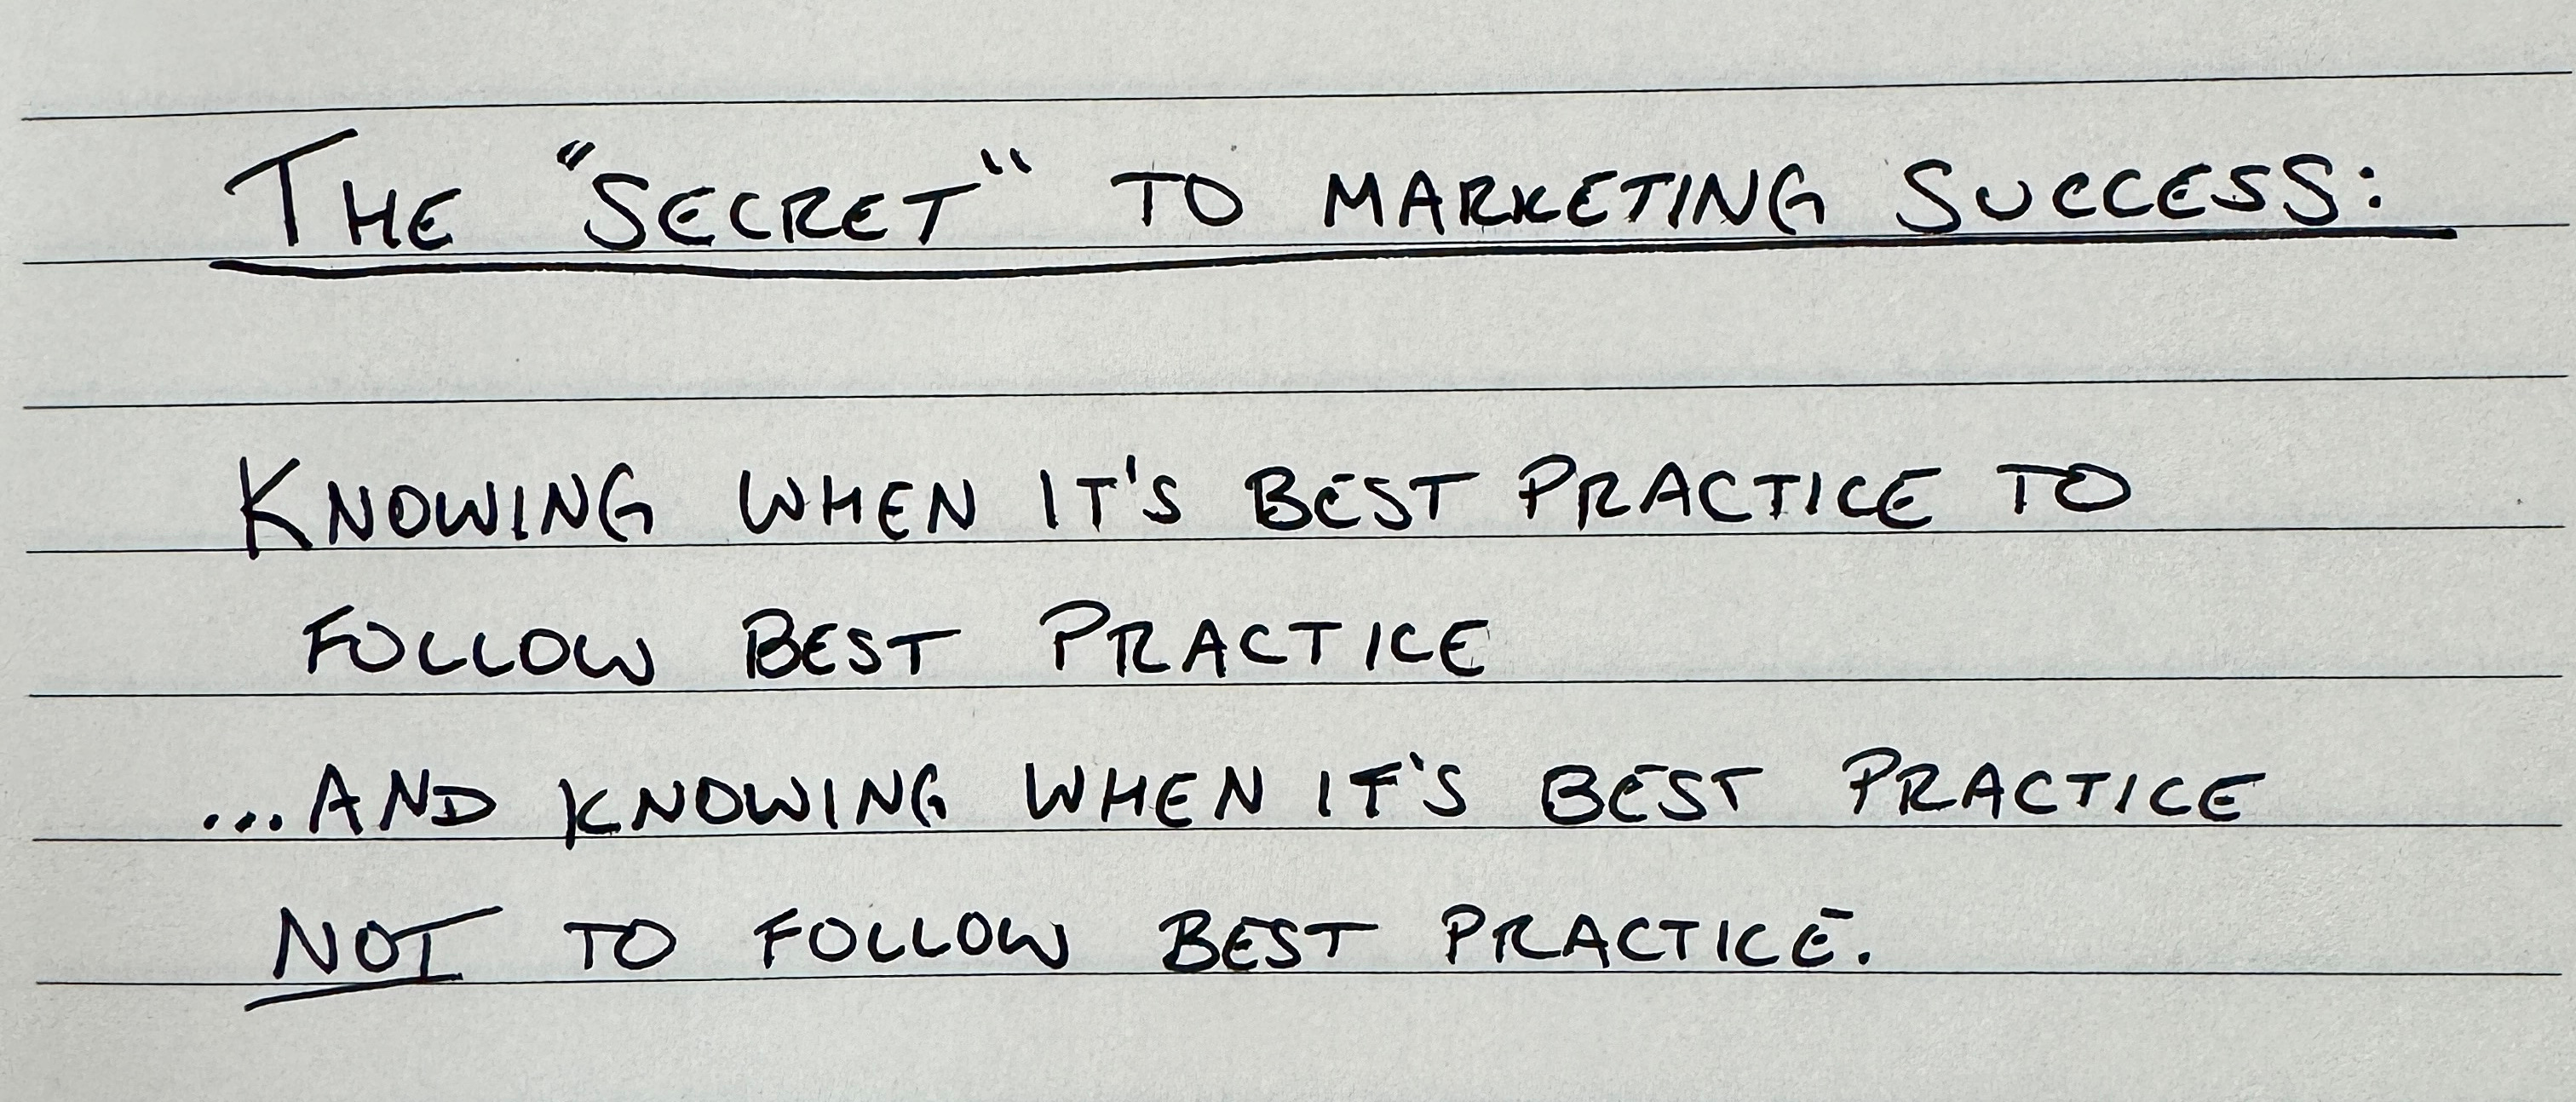 THE "SECRET" TO MARKETING SUCCESS:
KNOWING WHEN IT'S BEST PRACTICE TO
FOLLOW BEST PRACTICE
...AND KNOWING WHEN IT'S BEST PRACTICE
NOT TO FOLLOW BEST PRACTICE.